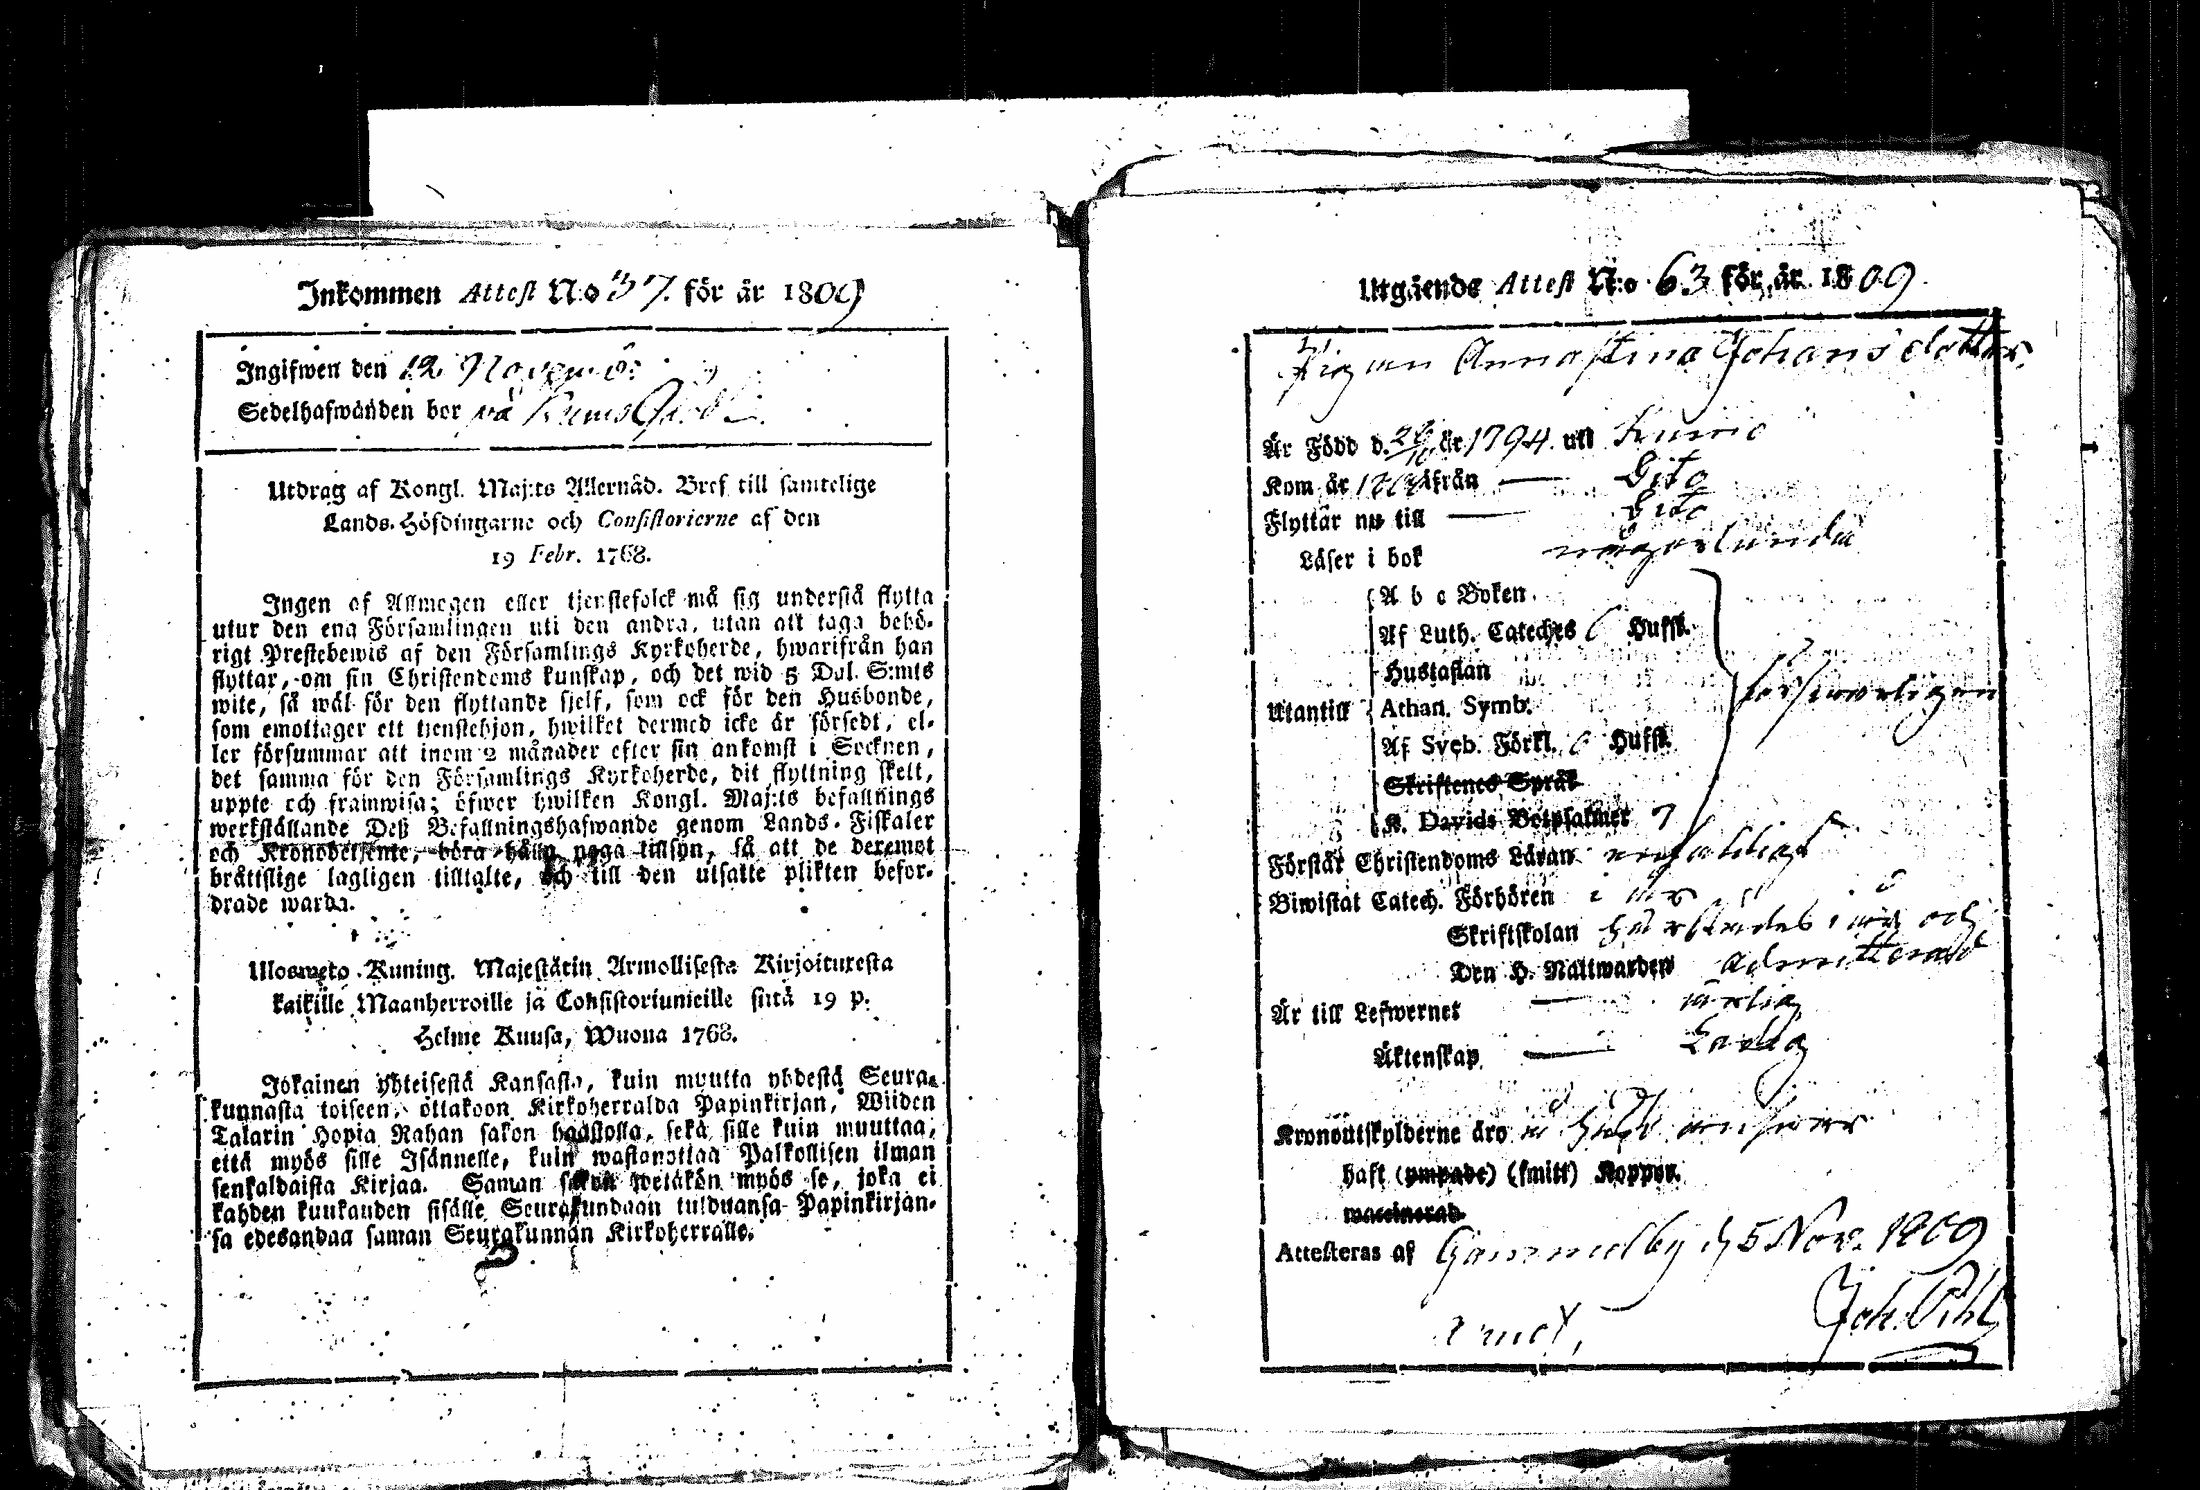 Inkommen Attest N:o 37. för år 1809
Ingifwen den 12 Novemb:
Sedelhafwanden bor på Kumo
Utdrag af Kongl. Maj:ts Allernåd. Bref till samtelige
Lands-Höfdingarne och Consistorierne af den
19 Febr. 1768.
Ingen af Allmogen eller tjenstefolck må sig understå flytta
utur den ena Församlingen uti den andra, utan att taga behö-
rigt Prestebewis af den Församlings Kyrkoherde, hwarifrån han
flyttar, om sin Christendoms kunskap, och det wid 5 Dal. S:mts
wite, så wäl för den flyttande sjelf, som ock för den Husbonde,
som emottager ett tjenstehjon, hwilket dermed icke är försedt, el-
ler försummar att inom 2 månader efter sin ankomst i Socknen,
det samma för den Församlings Kyrkoherde, dit flyttning skett,
uppte och framwisa; öfwer hwilken Kongl. Maj:ts befallnings
werkställande Deß Befallningshafwande genom Lands-Fiskaler
och Kronobetjente, böra hålla noga tillsyn, så att de deremot
bråttslige lagligen tilltalte, och till den utsatte plikten befor-
drade warda.
Ulosweto Kuning. Majestätin Armollisesta Kirjoituxesta
kaikille Maanherroille ja Consistoriumeille siitä 19 p.
Helme Kuusa, Wuona 1768.
Jokainen yhteisestä Kansasta, kuin muutta yhdestä Seura-
kunnasta toiseen, ottakoon Kirkoherralda Papinkirjan, Wiiden
Talarin Hopia Rahan sakon haastolla, sekä sille kuin muuttaa,
että myös sille Isännelle, kuin wastanottaa Palkollisen ilman
senkaldaista Kirjaa. Saman sakon wetäkön myös se, joka ei
kahden kuukauden sisälle Seurakundaan tulduansa Papinkirjan-
sa edesandaa saman Seurakunnan Kirkoherralle.
Utgående Attest N:o 63 för år 1809.
Pigan Anna Stina Johansdotter
Är Född d. 26/10 år 1794. uti Kumo
Kom år ifrån — Dito
Flyttar nu till — Dito
Läser i bok någorlunda
A b c Boken
Af Luth. Cateches 6 Hufst.
Hustaflan
Utantill Athan. Symb. försvarligen
Af Sveb. Förkl. 6 Hufst.
Skriftenes Språk
K. Davids Botpsalmer 7
Förstår Christendoms Läran enfaldigt
Biwistat Catech. Förhören i år
Skriftskolan härstädes i år och
Den H. Nattwarden admitterad
Är till Lefwernet — ärlig
Äktenskap — Ledig
Kronoutskylderne äro
haft (ympade) (smitt) Koppor.
waccinerad.
Attesteras af Gammelby d 5 Nov. 1809
Joh. Pihl